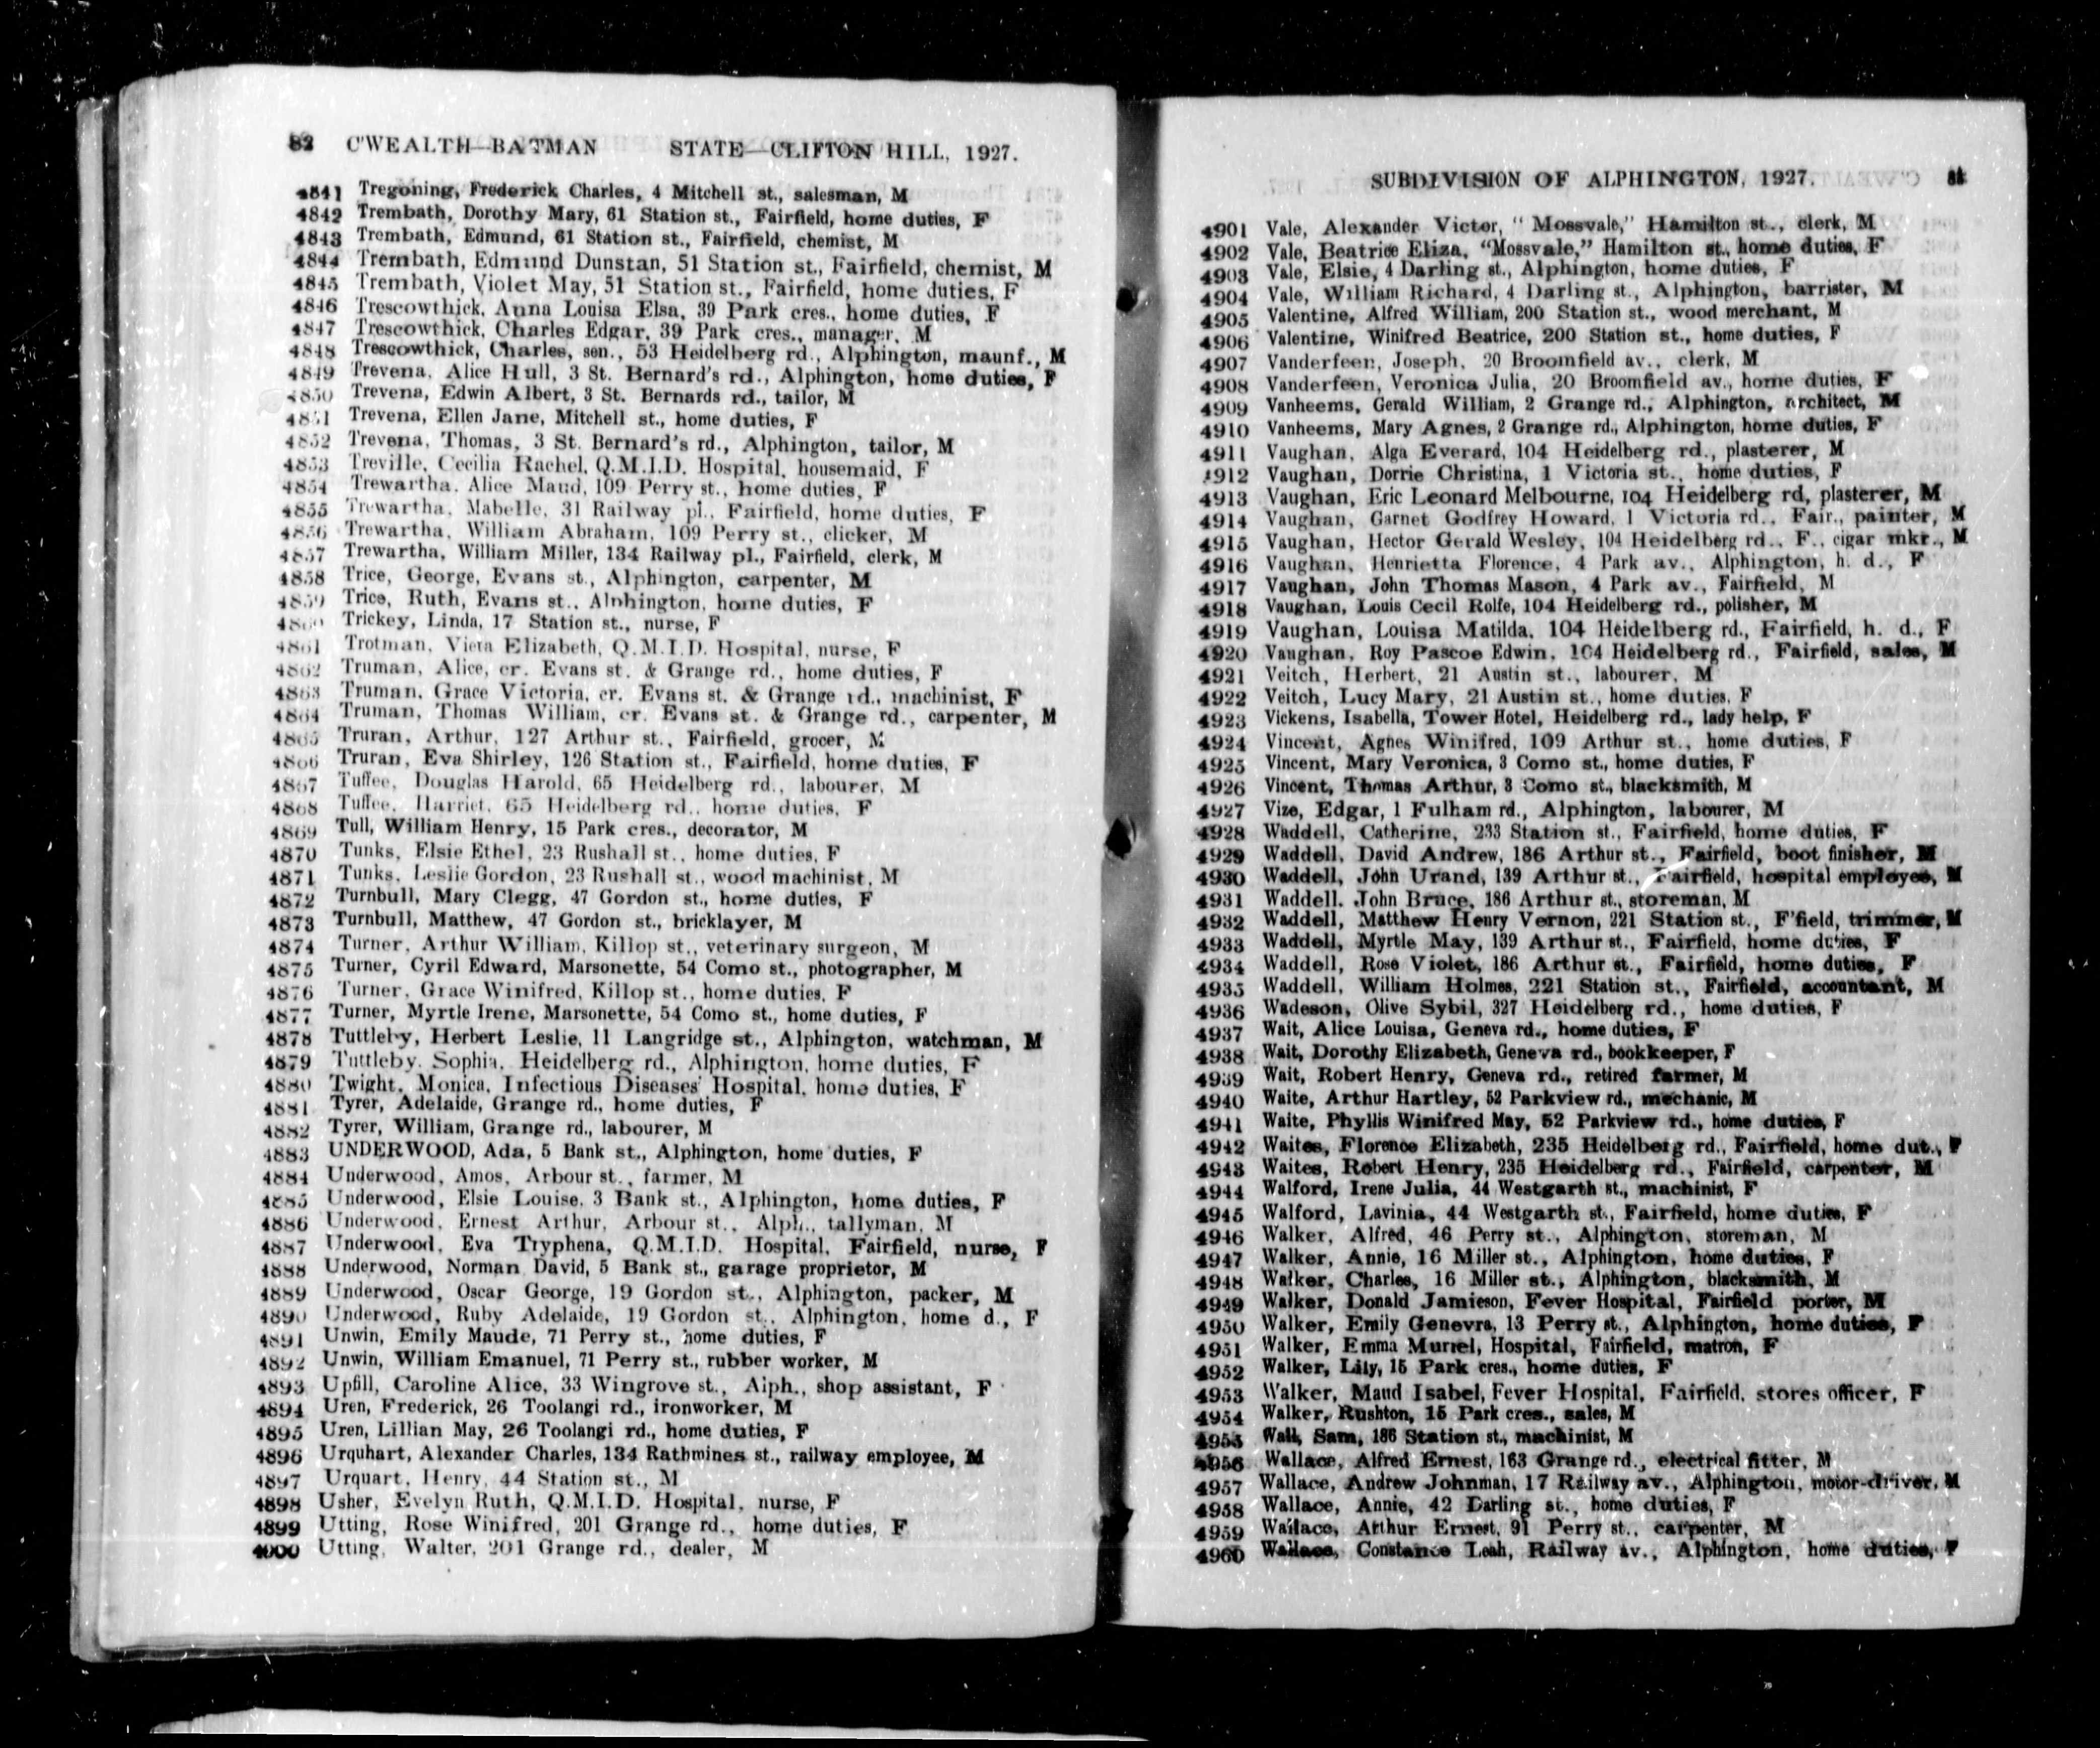 82 C'WEALTH—BATMAN STATE—CLIFTON HILL, 1927.
4841 Tregoning, Frederick Charles, 4 Mitchell st., salesman, M
4842 Trembath, Dorothy Mary, 61 Station st., Fairfield, home duties, F
4843 Trembath, Edmund, 61 Station st., Fairfield, chemist, M
4844 Trembath, Edmund Dunstan, 51 Station st., Fairfield, chemist, M
4845 Trembath, Violet May, 51 Station st., Fairfield, home duties, F
4846 Trescowthick, Anna Louisa Elsa, 39 Park cres., home duties, F
4847 Trescowthick, Charles Edgar, 39 Park cres., manager, M
4848 Trescowthick, Charles, sen., 53 Heidelberg rd., Alphington, maunf., M
4849 Trevena, Alice Hull, 3 St. Bernard's rd., Alphington, home duties, F
4850 Trevena, Edwin Albert, 3 St. Bernards rd., tailor, M
4851 Trevena, Ellen Jane, Mitchell st., home duties, F
4852 Trevena, Thomas, 3 St. Bernard's rd., Alphington, tailor, M
4853 Treville, Cecilia Rachel, Q.M.I.D. Hospital, housemaid, F
4854 Trewartha, Alice Maud, 109 Perry st., home duties, F
4855 Trewartha, Mabelle, 31 Railway pl., Fairfield, home duties, F
4856 Trewartha, William Abraham, 109 Perry st., clicker, M
4857 Trewartha, William Miller, 134 Railway pl., Fairfield, clerk, M
4858 Trice, George, Evans st., Alphington, carpenter, M
4859 Trice, Ruth, Evans st., Alphington, home duties, F
4860 Trickey, Linda, 17 Station st., nurse, F
4861 Trotman, Viera Elizabeth, Q.M.I.D. Hospital, nurse, F
4862 Truman, Alice, cr. Evans st. & Grange rd., home duties, F
4863 Truman, Grace Victoria, cr. Evans st. & Grange rd., machinist, F
4864 Truman, Thomas William, cr. Evans st. & Grange rd., carpenter, M
4865 Truran, Arthur, 127 Arthur st., Fairfield, grocer, M
4866 Truran, Eva Shirley, 126 Station st., Fairfield, home duties, F
4867 Tuffee, Douglas Harold, 65 Heidelberg rd., labourer, M
4868 Tuffee, Harriet, 65 Heidelberg rd., home duties, F
4869 Tull, William Henry, 15 Park cres., decorator, M
4870 Tunks, Elsie Ethel, 23 Rushall st., home duties, F
4871 Tunks, Leslie Gordon, 23 Rushall st., wood machinist, M
4872 Turnbull, Mary Clegg, 47 Gordon st., home duties, F
4873 Turnbull, Matthew, 47 Gordon st., bricklayer, M
4874 Turner, Arthur William, Killop st., veterinary surgeon, M
4875 Turner, Cyril Edward, Marsonette, 54 Como st., photographer, M
4876 Turner, Grace Winifred, Killop st., home duties, F
4877 Turner, Myrtle Irene, Marsonette, 54 Como st., home duties, F
4878 Tuttleby, Herbert Leslie, 11 Langridge st., Alphington, watchman, M
4879 Tuttleby, Sophia, Heidelberg rd., Alphington, home duties, F
4880 Twight, Monica, Infectious Diseases' Hospital, home duties, F
4881 Tyrer, Adelaide, Grange rd., home duties, F
4882 Tyrer, William, Grange rd., labourer, M
4883 UNDERWOOD, Ada, 5 Bank st., Alphington, home duties, F
4884 Underwood, Amos, Arbour st., farmer, M
4885 Underwood, Elsie Louise, 3 Bank st., Alphington, home duties, F
4886 Underwood, Ernest Arthur, Arbour st., Alph., tallyman, M
4887 Underwood, Eva Tryphena, Q.M.I.D. Hospital, Fairfield, nurse, F
4888 Underwood, Norman David, 5 Bank st., garage proprietor, M
4889 Underwood, Oscar George, 19 Gordon st., Alphington, packer, M
4890 Underwood, Ruby Adelaide, 19 Gordon st., Alphington, home d., F
4891 Unwin, Emily Maude, 71 Perry st., home duties, F
4892 Unwin, William Emanuel, 71 Perry st., rubber worker, M
4893 Upfill, Caroline Alice, 33 Wingrove st., Alph., shop assistant, F
4894 Uren, Frederick, 26 Toolangi rd., ironworker, M
4895 Uren, Lillian May, 26 Toolangi rd., home duties, F
4896 Urquhart, Alexander Charles, 134 Rathmines st., railway employee, M
4897 Urquart, Henry, 44 Station st., M
4898 Usher, Evelyn Ruth, Q.M.I.D. Hospital, nurse, F
4899 Utting, Rose Winifred, 201 Grange rd., home duties, F
4900 Utting, Walter, 201 Grange rd., dealer, M
SUBDIVISION OF ALPHINGTON, 1927.
4901 Vale, Alexander Victor, "Mossvale," Hamilton st., clerk, M
4902 Vale, Beatrice Eliza, "Mossvale," Hamilton st., home duties, F
4903 Vale, Elsie, 4 Darling st., Alphington, home duties, F
4904 Vale, William Richard, 4 Darling st., Alphington, barrister, M
4905 Valentine, Alfred William, 200 Station st., wood merchant, M
4906 Valentine, Winifred Beatrice, 200 Station st., home duties, F
4907 Vanderfeen, Joseph, 20 Broomfield av., clerk, M
4908 Vanderfeen, Veronica Julia, 20 Broomfield av., home duties, F
4909 Vanheems, Gerald William, 2 Grange rd., Alphington, architect, M
4910 Vanheems, Mary Agnes, 2 Grange rd., Alphington, home duties, F
4911 Vaughan, Alga Everard, 104 Heidelberg rd., plasterer, M
4912 Vaughan, Dorrie Christina, 1 Victoria st., home duties, F
4913 Vaughan, Eric Leonard Melbourne, 104 Heidelberg rd, plasterer, M
4914 Vaughan, Garnet Godfrey Howard, 1 Victoria rd., Fair., painter, M
4915 Vaughan, Hector Gerald Wesley, 104 Heidelberg rd., F., cigar mkr., M
4916 Vaughan, Henrietta Florence, 4 Park av., Alphington, h. d., F
4917 Vaughan, John Thomas Mason, 4 Park av., Fairfield, M
4918 Vaughan, Louis Cecil Rolfe, 104 Heidelberg rd., polisher, M
4919 Vaughan, Louisa Matilda, 104 Heidelberg rd., Fairfield, h. d., F
4920 Vaughan, Roy Pascoe Edwin, 104 Heidelberg rd., Fairfield, sales, M
4921 Veitch, Herbert, 21 Austin st., labourer, M
4922 Veitch, Lucy Mary, 21 Austin st., home duties, F
4923 Vickens, Isabella, Tower Hotel, Heidelberg rd., lady help, F
4924 Vincent, Agnes Winifred, 109 Arthur st., home duties, F
4925 Vincent, Mary Veronica, 3 Como st., home duties, F
4926 Vincent, Thomas Arthur, 3 Como st., blacksmith, M
4927 Vize, Edgar, 1 Fulham rd., Alphington, labourer, M
4928 Waddell, Catherine, 233 Station st., Fairfield, home duties, F
4929 Waddell, David Andrew, 186 Arthur st., Fairfield, boot finisher, M
4930 Waddell, John Urand, 139 Arthur st., Fairfield, hospital employee, M
4931 Waddell, John Bruce, 186 Arthur st., storeman, M
4932 Waddell, Matthew Henry Vernon, 221 Station st., F'field, trimmer, M
4933 Waddell, Myrtle May, 139 Arthur st., Fairfield, home duties, F
4934 Waddell, Rose Violet, 186 Arthur st., Fairfield, home duties, F
4935 Waddell, William Holmes, 221 Station st., Fairfield, accountant, M
4936 Wadeson, Olive Sybil, 327 Heidelberg rd., home duties, F
4937 Wait, Alice Louisa, Geneva rd., home duties, F
4938 Wait, Dorothy Elizabeth, Geneva rd., bookkeeper, F
4939 Wait, Robert Henry, Geneva rd., retired farmer, M
4940 Waite, Arthur Hartley, 52 Parkview rd., mechanic, M
4941 Waite, Phyllis Winifred May, 52 Parkview rd., home duties, F
4942 Waites, Florence Elizabeth, 235 Heidelberg rd., Fairfield, home dut., F
4943 Waites, Robert Henry, 235 Heidelberg rd., Fairfield, carpenter, M
4944 Walford, Irene Julia, 44 Westgarth st., machinist, F
4945 Walford, Lavinia, 44 Westgarth st., Fairfield, home duties, F
4946 Walker, Alfred, 46 Perry st., Alphington, storeman, M
4947 Walker, Annie, 16 Miller st., Alphington, home duties, F
4948 Walker, Charles, 16 Miller st., Alphington, blacksmith, M
4949 Walker, Donald Jamieson, Fever Hospital, Fairfield porter, M
4950 Walker, Emily Genevra, 13 Perry st., Alphington, home duties, F
4951 Walker, Emma Muriel, Hospital, Fairfield, matron, F
4952 Walker, Lily, 15 Park cres., home duties, F
4953 Walker, Maud Isabel, Fever Hospital, Fairfield, stores officer, F
4954 Walker, Rushton, 15 Park cres., sales, M
4955 Wall, Sam, 186 Station st., machinist, M
4956 Wallace, Alfred Ernest, 163 Grange rd., electrical fitter, M
4957 Wallace, Andrew Johnman, 17 Railway av., Alphington, motor-driver, M
4958 Wallace, Annie, 42 Darling st., home duties, F
4959 Wallace, Arthur Ernest, 91 Perry st., carpenter, M
4960 Wallace, Constance Leah, Railway av., Alphington, home duties, F